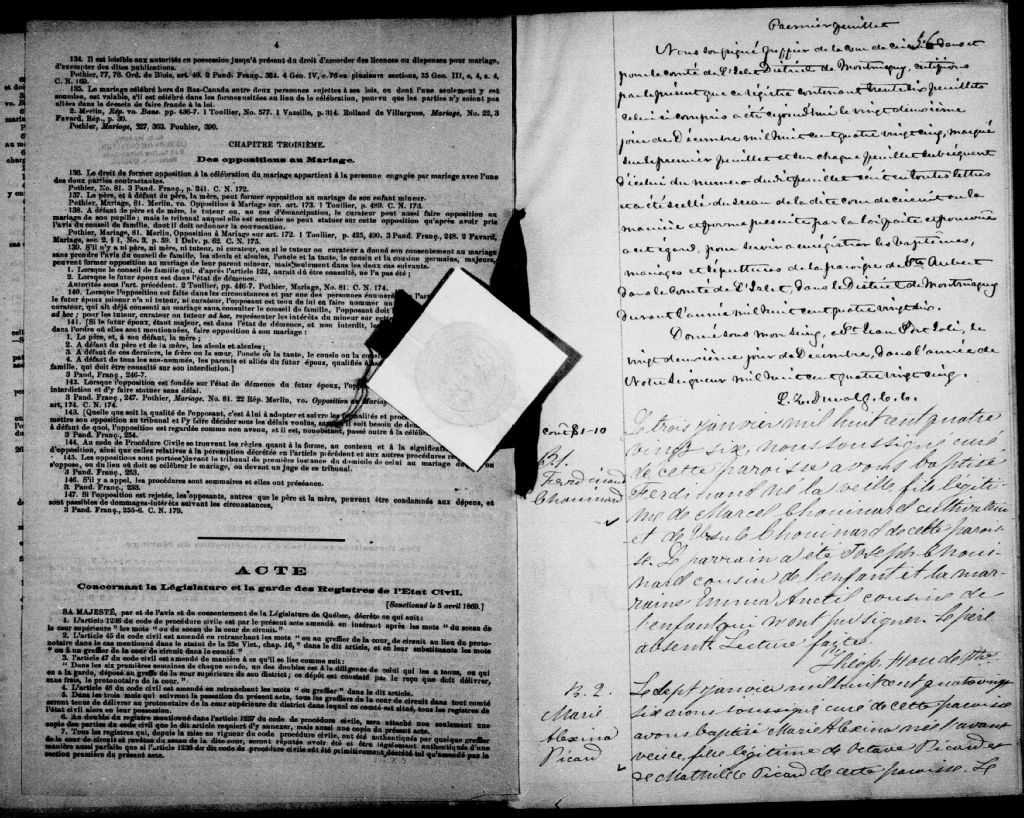 4
134. Il est loisible aux autorités en possession jusqu'à présent du droit d'accorder des licences ou dispenses pour mariage,
d'exempter des dites publications.
Pothier, 77, 78. Ord. de Blois, art. 40. 2 Pand. Franç., 324. 4 Geo. IV, c. 76 en plusieurs sections, 35 Geo. III, c, 4, s. 4,
C. N. 169.
135. Le mariage célébré hors du Bas-Canada entre deux personnes sujettes à ses lois, ou dont l'une seulement y est
soumise, est valable, s'il est célébré dans les formes usitées au lieu de la célébration, pourvu que les parties n'y soient pas
allées dans le dessein de faire fraude à la loi.
2. Merlin, Rép. vo. Bans. pp. 436-7. 1 Toullier, No. 577. 1 Vazeille, p. 314. Rolland de Villargues, Mariage, No. 22, 3
Favard, Rép., p. 30.
Pothier, Mariage, 327, 363. Pouhier, 390.
CHAPITRE TROISIÈME.
Des oppositions au Mariage.
136. Le droit de former opposition à la célébration du mariage appartient à la personne engagée par mariage avec l'une
des deux parties contractantes.
Pothier, No. 81. 3 Pand. Franç., p. 241. C. N. 172.
137. Le père, et à défaut du père, la mère, peut former opposition au mariage de son enfant mineur.
Pothier, Mariage, 81. Merlin, vo. Opposition à Mariage sur. art. 173. 1 Toullier, p. 489. C. N. 173.
138. A défaut de père et de mère, le tuteur ou, au cas d'émancipation, le curateur peut aussi faire opposition au
mariage de son pupille; mais le tribunal auquel elle est soumise ne peut statuer sur cette opposition qu'après avoir pris
l'avis du conseil de famille, dont il doit ordonner la convocation.
Pothier, Mariage, 81. Merlin, Opposition à Mariage sur art. 172. 1 Toullier, p. 425, 490. 3 Pand. Franç., 248. 2 Favard,
Mariage, sec. 2, § 1, No. 3, p. 59. 1 Delv. p. 62. C. N. 175.
139. S'il n'y a ni père, ni mère, ni tuteur, ni curateur, ou si le tuteur ou curateur a donné son consentement au mariage
sans prendre l'avis du conseil de famille, les aïeuls et aïeules, l'oncle et la tante, le cousin et la cousine germains, majeurs,
peuvent former opposition au mariage de leur parent mineur, mais seulement dans les deux cas suivants.
1. Lorsque le conseil de famille qui, d'après l'article 122, aurait dû être consulté, ne l'a pas été;
2. Lorsque le futur époux est dans l'état de démence.
Autorités sous l'art. précédent. 2 Toullier, pp. 466-7. Pothier, Mariage, No. 81. C. N. 174.
140. Lorsque l'opposition est faite dans les circonstances et par une des personnes énumérées
le futur époux mineur n'a ni tuteur, ni curateur, l'opposant est tenu de lui en faire nommer un
curateur, qui ait déjà consenti au mariage sans consulter le conseil de famille, l'opposant doit
ad hoc; pour les tuteur, curateur ou tuteur ad hoc, représenter les intérêts du mineur sur cette
141. [Si le futur époux, étant majeur, est dans l'état de démence, et non interdit, les
dans l'ordre où elles sont mentionnées, faire opposition à son mariage:
1. Le père, et, à son défaut, la mère;
2. A défaut du père et de la mère, les aïeuls et aïeules;
3. A défaut de ces derniers, le frère ou la sœur, l'oncle ou la tante, le cousin ou la
4. A défaut de tous les sus-nommés, les parents et alliés du futur époux, qualifiés à
famille, qui doit être consulté sur son interdiction.]
3 Pand. Franç., 246-7.
142. Lorsque l'opposition est fondée sur l'état de démence du futur époux,
interdiction et d'y faire statuer sans délai.
3 Pand. Franç., 247. Pothier, Mariage, No. 81. 22 Rép. Merlin, vo. Opposition au Mariage
art. 174. C. N. 174.
143. [Quelle que soit la qualité de l'opposant, c'est à lui à adopter et suivre les formalités et
mettre son opposition au tribunal et l'y faire décider sous les délais voulus, sans qu'il soit besoin de
à défaut de quoi, l'opposition est regardée comme non avenue, et il est, nonobstant, passé outre à la
3 Pand. Franç., 254.
144. Au code de Procédure Civile se trouvent les règles quant à la forme, au contenu et à la signification
d'opposition, ainsi que celles relatives à la péremption décrétée en l'article précédent et aux autres procédures
145. Les oppositions sont portées devant le tribunal de première instance du domicile de celui au mariage
s'oppose, ou du lieu où doit se célébrer le mariage, ou devant un juge de ce tribunal.
3 Pand. Franç., 253.
146. S'il y a appel, les procédures sont sommaires et elles ont préséance.
3 Pand. Franç., 253.
147. Si l'opposition est rejetée, les opposants, autres que le père et la mère, peuvent être condamnés aux dépens, et
sont passibles de dommages-intérêts suivant les circonstances,
3 Pand. Franç., 255-6. C. N. 179.
ACTE
Concernant la Législature et la garde des Registres de l'Etat Civil.
[Sanctionné le 5 avril 1869.]
SA MAJESTÉ, par et de l'avis et du consentement de la Législature de Québec, décrète ce qui suit:
1. L'article 1236 du code de procédure civile est par le présent acte amendé en insérant après les mots "du sceau de
la cour supérieure" les mots "ou du sceau de la cour de circuit."
2. L'article 45 du code civil est amendé en retranchant les mots "ou au greffier de la cour de circuit au lieu du proto-
notaire dans le cas mentionné dans le statut de la 25e Vict., chap. 16," dans le dit article, et en leur substituant les mots
"ou à un greffier de la cour de circuit dans le comté."
3. L'article 47 du code civil est amendé de manière à ce qu'il se lise comme suit:
"Dans les six premières semaines de chaque année, un des doubles est à la diligence de celui qui les a tenus, ou
en a la garde, déposé au greffe de la cour supérieure de son district; ce dépôt est constaté par le reçu que doit délivrer,
sans frais, le protonotaire de la cour."
4. L'article 48 du code civil est amendé en retranchant les mots "ou greffier" dans le dit article.
5. Dans les trois mois qui suivront la passation du présent acte, tous les greffiers de la cour de circuit dans tout comté
seront tenus de délivrer au protonotaire de la cour supérieure du district dans lequel ce comté est situé, tous les registres de
l'état civil alors en leur possession.
6. Au double du registre mentionné dans l'article 1237 du code de procédure civile, sera attaché non seulement une
copie des parties du code civil que le dit article requiert d'y annexer, mais aussi une copie du présent acte.
7. Tous les registres qui, depuis la mise en vigueur du code de procédure civile, ont été authentiqués par quelque greffier
de la cour de circuit et revêtus du sceau de la dite cour, seront réputés avoir été et être légalement authentiqués d'une
manière aussi parfaite que si l'article 1236 du dit code de procédure civile eût été primitivement décrété tel qu'amendé par la
section première du présent acte.
Premier feuillet
Nous soussigné greffier de la cour de circuit dans et
pour le comté de L'Islet, District de Montmagny, certifions
par le présent que ce régistre contenant trente six feuillets
celui ci compris a été ce jourd'hui le vingt deuxième
jour de Décembre mil huit cent quatre vingt cinq, marqué
sur le premier feuillet et sur chaque feuillet subséquent
d'icelui du numéro du dit feuillet écrit en toutes lettres
et a été scellé du sceau de la dite cour de circuit en la
manière et forme présente par la loi faite et pourvue
à cet égard, pour servir à enrégistrer les baptêmes,
mariages et sépultures de la paroisse de St. Aubert
dans le comté de L'Islet, dans le District de Montmagny
durant l'année mil huit cent quatre vingt six.
Donné sous mon seing, à St Jean Port Joli, le
vingt deuxième jour de Décembre, dans l'année de
Notre Seigneur mil huit cent quatre vingt cinq.
L. Z. Duval g. c. c.
B1.
Ferdinand
Chouinard
Le trois janvier mil huit cent quatre
vingt six, nous soussigné curé
de cette paroisse avons baptisé
Ferdinand né la veille fils légiti-
me de Marcel Chouinard cultivateur
et de Ursule Chouinard de cette parois-
se. Le parrain a été Joseph Choui-
nard cousin de l'enfant et la mar-
raine Emma Anctil cousine de
l'enfant qui n'ont pu signer. Le père
absent. Lecture faite.
Théop. Houde Ptre
B. 2.
Marie
Alexina
Picard
Le sept janvier mil huit cent quatre vingt
six nous soussigné curé de cette paroisse
avons baptisé Marie Alexina née l'avant
veille, fille légitime de Octave Picard et
de Mathilde Picard de cette paroisse. Le